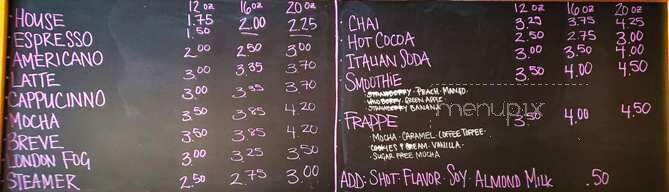 12 oz 16 oz 20 oz
HOUSE 1.75 2.00 2.25
ESPRESSO 1.50
AMERICANO 2.00 2.50 3.00
LATTE 3.00 3.35 3.70
CAPPUCINNO 3.00 3.35 3.70
MOCHA 3.50 3.85 4.20
BREVE 3.50 3.85 4.20
LONDON FOG 3.00 3.25 3.50
STEAMER 2.50 2.75 3.00
12 oz 16 oz 20 oz
CHAI 3.25 3.75 4.25
HOT COCOA 2.50 2.75 3.00
ITALIAN SODA 3.00 3.50 4.00
SMOOTHIE 3.50 4.00 4.50
STRAWBERRY · PEACH · MANGO
WILDBERRY · GREEN APPLE
STRAWBERRY BANANA
FRAPPE 3.50 4.00 4.50
MOCHA · CARAMEL · COFFEE TOFFEE ·
COOKIES & CREAM · VANILLA ·
SUGAR FREE MOCHA
ADD: SHOT · FLAVOR · SOY · ALMOND MILK .50
menupix